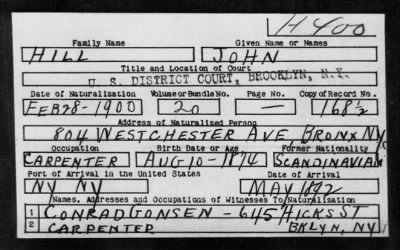 H400
Family Name Given Name or Names
HILL JOHN
Title and Location of Court
U. S. DISTRICT COURT, BROOKLYN, N.Y.
Date of Naturalization Volume or Bundle No. Page No. Copy of Record No.
FEB 28-1900 20 — 168½
Address of Naturalized Person
804 WESTCHESTER AVE BRONX NYC
Occupation Birth Date or Age Former Nationality
CARPENTER AUG 10-1874 SCANDINAVIAN
Port of Arrival in the United States Date of Arrival
NY NY MAY 1892
Names, Addresses and Occupations of Witnesses To Naturalization
1 CONRAD GONSEN - 645 HICKS ST
2 CARPENTER BKLYN, NY